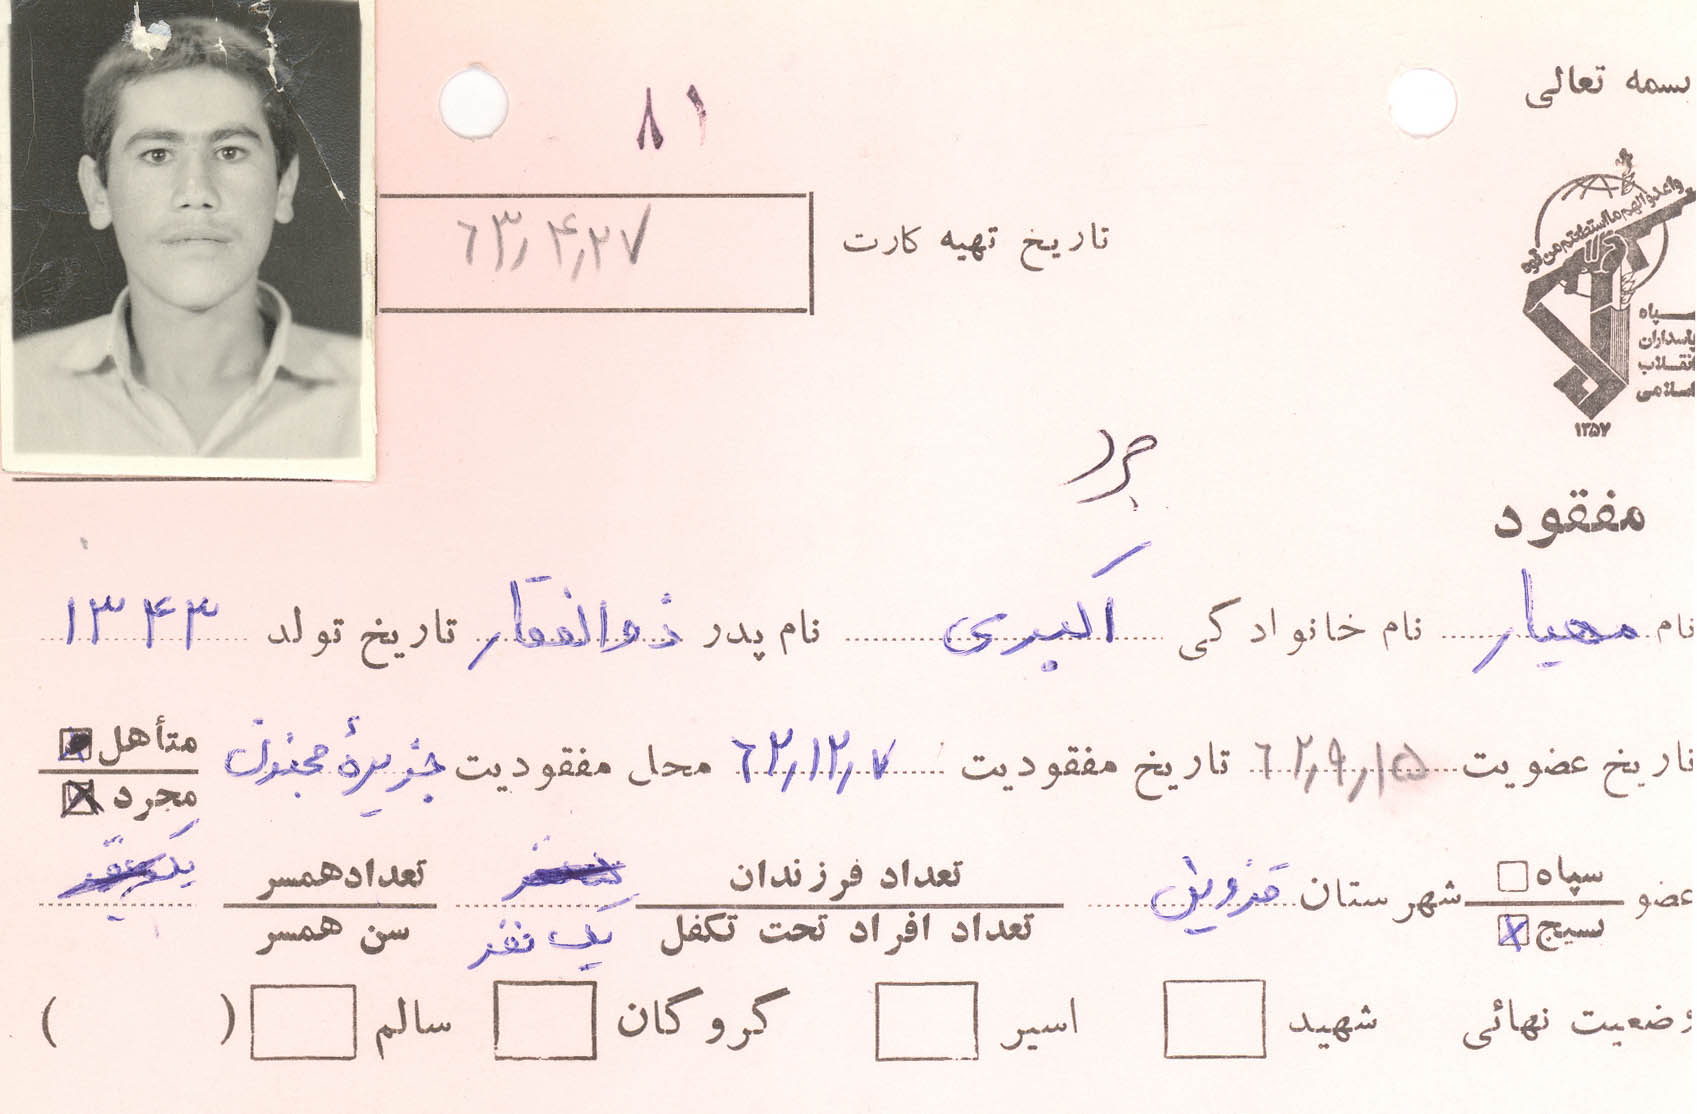 بسمه تعالی
۸۱
تاریخ تهیه کارت ۶۳٫۴٫۲۷
واعدوا لهم ما استطعتم من قوه
سپاه
پاسداران
انقلاب
اسلامی
۱۳۵۷
مفقود
نام مهیار نام خانوادگی اکبری نام پدر ذوالفقار تاریخ تولد ۱۳۴۳
تاریخ عضویت ۶۲٫۹٫۱۵ تاریخ مفقودیت ۶۲٫۱۲٫۷ محل مفقودیت جزیرهٔ مجنون متأهل
مجرد
عضو سپاه شهرستان قزوین تعداد فرزندان تعداد همسر
بسیج تعداد افراد تحت تکفل یک نفر سن همسر
وضعیت نهائی شهید اسیر گروگان سالم ( )